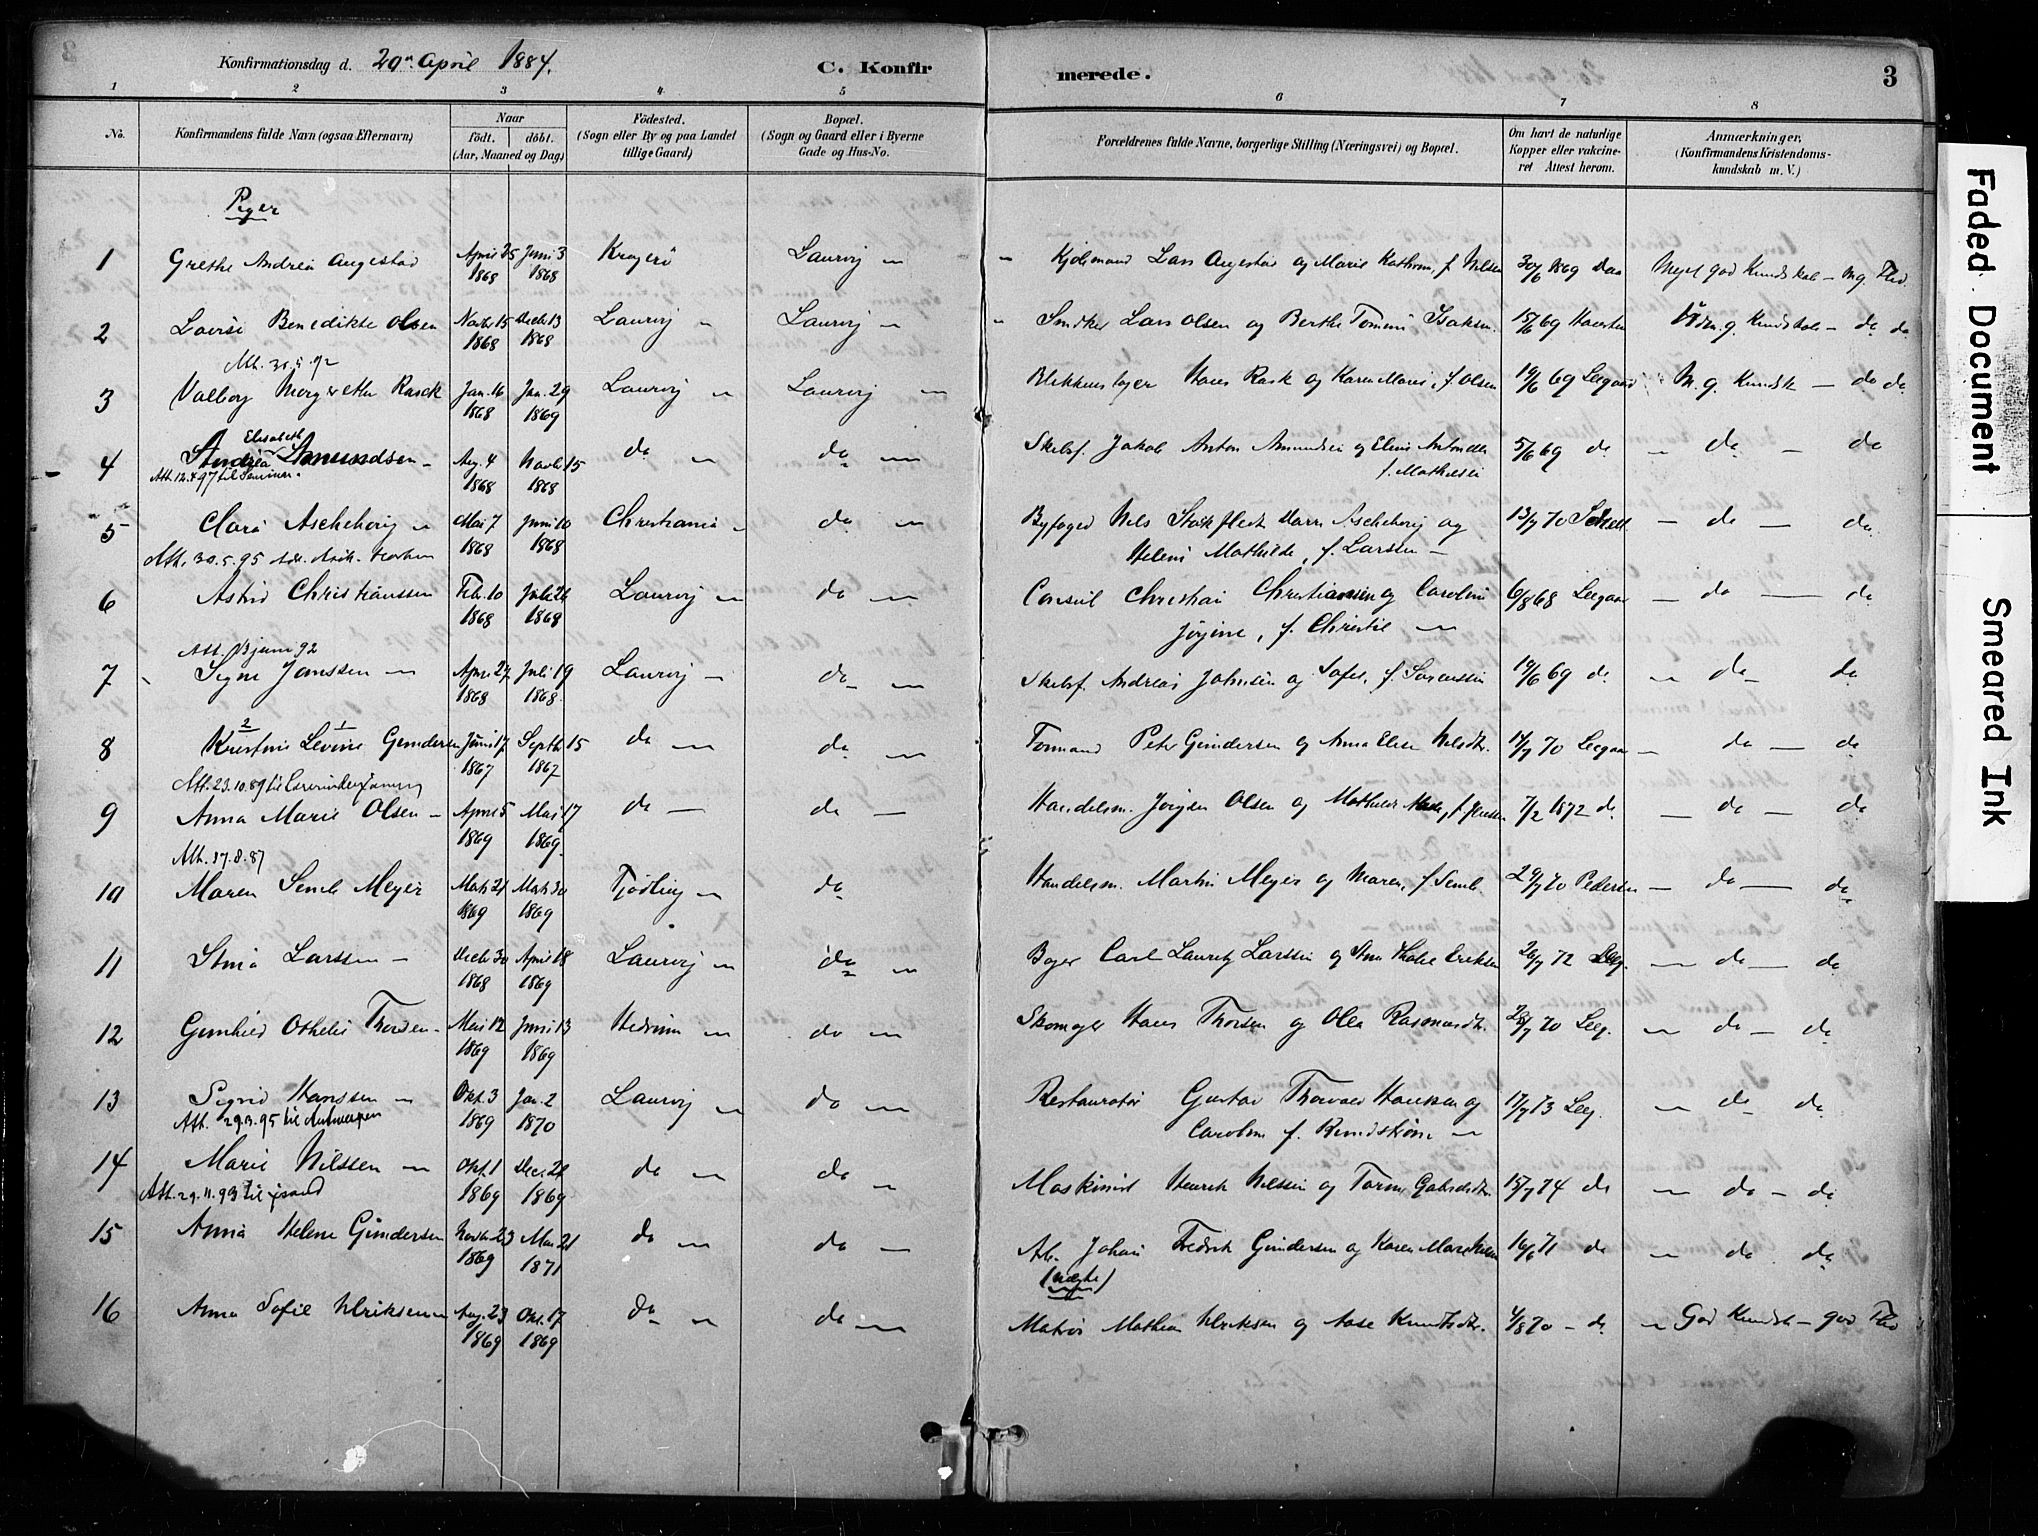 Konfirmationsdag d. 20de April 1884.
C. Konfirmerede.
3
1 2 3 4 5 6 7 8
No.
Konfirmandens fulde Navn (ogsaa Efternavn)
Naar
født. døbt.
(Aar, Maaned og Dag)
Fødested.
(Sogn eller By og paa Landet
tillige Gaard)
Bopæl.
(Sogn og Gaard eller i Byerne
Gade og Hus-No.
Forældrenes fulde Navne, borgerlige Stilling (Næringsvei) og Bopæl.
Om havt de naturlige
Kopper eller vakcine-
ret Attest herom.
Anmærkninger,
(Konfirmandens Kristendoms-
kundskab m. V.)
Piger
1 Grethe Andrea Augestad April 25 1868 Juni 3 1868 Kragerö Laurvig Lars Augestad og Marie Kathrine, f. Nilsen 30/6 1869 Daa Meget god Kundskab - mg. Flid
2 Lovise Benedikte Olsen Novbr 15 1868 Decbr 13 1868 Laurvig Laurvig Snedker Lars Olsen og Berthe Tomine Isaksen 15/6 69 g. Kundskab - do do
Att. 30.5.92
3 Valborg Margrethe Rasck Jan. 16 1868 Jan. 29 1869 Laurvig Laurvig Blikkenslager Hans Rask og Karen Marie, f. Olsen 19/6 69 Leegaard M. g. Kundsk - do do
4 Elisabeth Amundsen Aug. 4 1868 Novbr 15 1868 do do Skibsf. Jakob Anton Amundsen og Elene Antonette
f. Mathisen 5/6 69 do do do
Att. 12.4.97 til Seminar.
5 Clara Aschehoug Mai 7 1868 Juni 10 1868 Christiania do Byfoged Nils Stokfleth Darre Aschehoug og
Helene Mathilde, f. Larssen 13/9 70 do do
Att. 30.5.95
6 Astrid Christianssen Feb. 10 1868 Juli 26 1868 Laurvig do Consul Christian Christianssen og Caroline
Jörgine, f. Christie 6/8 68 Leegaa do do
Att. Juni 92
7 Signe Janssen April 27 1868 Juli 19 1868 Laurvig do Skibsf. Andreas Johnsen og Sofie, f. Sörenssen 19/6 69 do do do
8 Kristine Levine Gundersen Juni 17 1867 Septbr 15 1867 do do Tommand Peter Gundersen og Anna Elise Nilsdtr. 14/9 70 Leegaa do do
Att. 23.10.89 til
9 Anna Marie Olsen April 5 1869 Mai 17 1869 do do Handelsm. Jörgen Olsen og Mathilde, f. Jensen 7/2 1872 do do do
Att. 17.8.87
10 Maren Semb Meyer Marts 21 1869 Marts 30 1869 Tjödling do Handelsm. Martin Meyer og Maren, f. Semb. 29/9 70 Pedersen do do
11 Stina Larssen Decbr 30 1868 April 18 1869 Laurvig do Bager Carl Lauritz Larssen og Eriksen 26/9 72 Leeg. do do
12 Gunhild Othelie Thorsen Mai 12 1869 Juni 13 1869 Hedrum do Skomager Hans Thorsen og Olea Rasmusdtr. 28/9 70 Leeg. do do
13 Sigrid Hanssen Okt. 3 1869 Jan. 2 1870 Laurvig do Restauratör Gustav Thorvald Hanssen og
Caroline f. Rundström 17/9 73 Leeg. do do
Att. 29.3.95 til Antwerpen
14 Marie Nilssen Okt. 1 1869 Dec. 26 1869 do do Maskinist Henrik Nilssen og Gabrielsdtr. 15/9 74 do do do
Att. 29.11.93 til
15 Anna Helene Gundersen Novbr. 23 1869 Mai 21 1871 do do Arb. Johan Fredrik Gundersen og Karen Marie 16/6 71 do do do
(uægte)
16 Anna Sofie Ulriksen Aug. 23 1869 Okt. 17 1869 do do Matros Mathias Ulriksen og Aase Knudsdtr. 4/8 70 do God Kundsk - god Flid
Faded Document
Smeared Ink